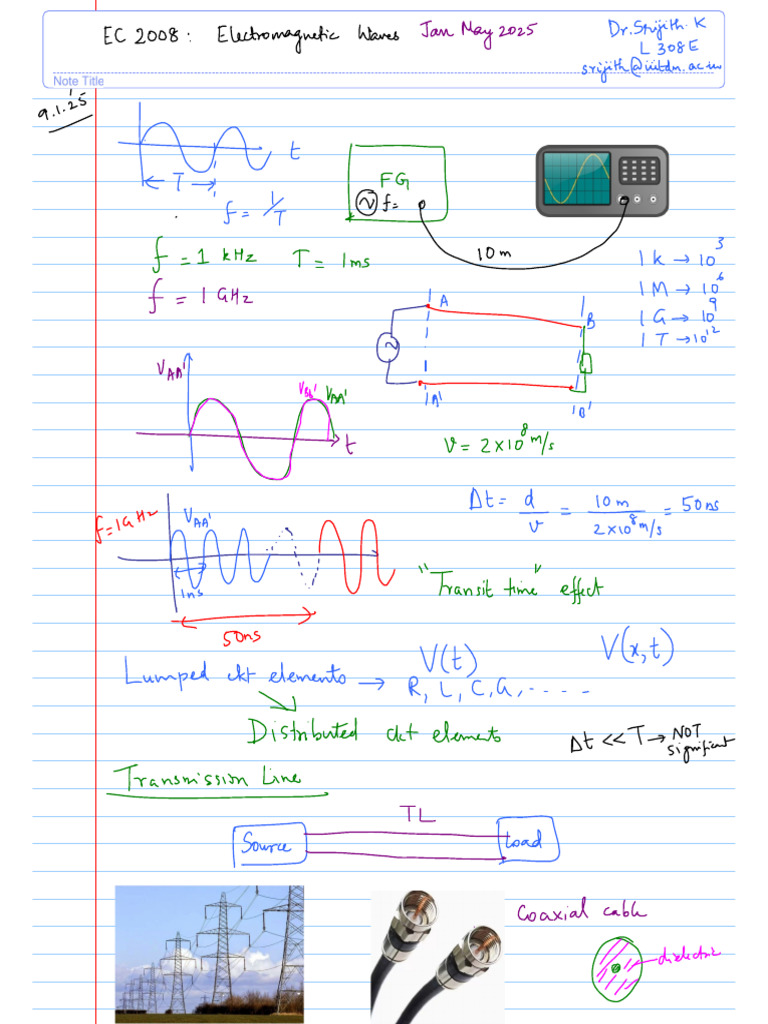 EC 2008: Electromagnetic Waves Jan May 2025
Dr. Srijith. K
L 308 E
srijith@iiitdm.ac.in
Note Title
9.1.25
t
T
f = 1/T
FG
f=
10 m
f = 1 kHz T = 1ms
f = 1 GHz
1 k → 10³
1 M → 10⁶
1 G → 10⁹
1 T → 10¹²
A
B
A'
B'
V_AA'
V_BB' V_AA'
t
v = 2×10⁸ m/s
f=1GHz
V_AA'
1ns
50ns
Δt = d/v = 10m/2×10⁸ m/s = 50ns
"Transit time" effect
V(t) V(x,t)
Lumped ckt elements → R, L, C, G, - - - - -
Distributed ckt elements
Δt << T → NOT significant
Transmission Line
TL
Source
Load
Coaxial cable
dielectric